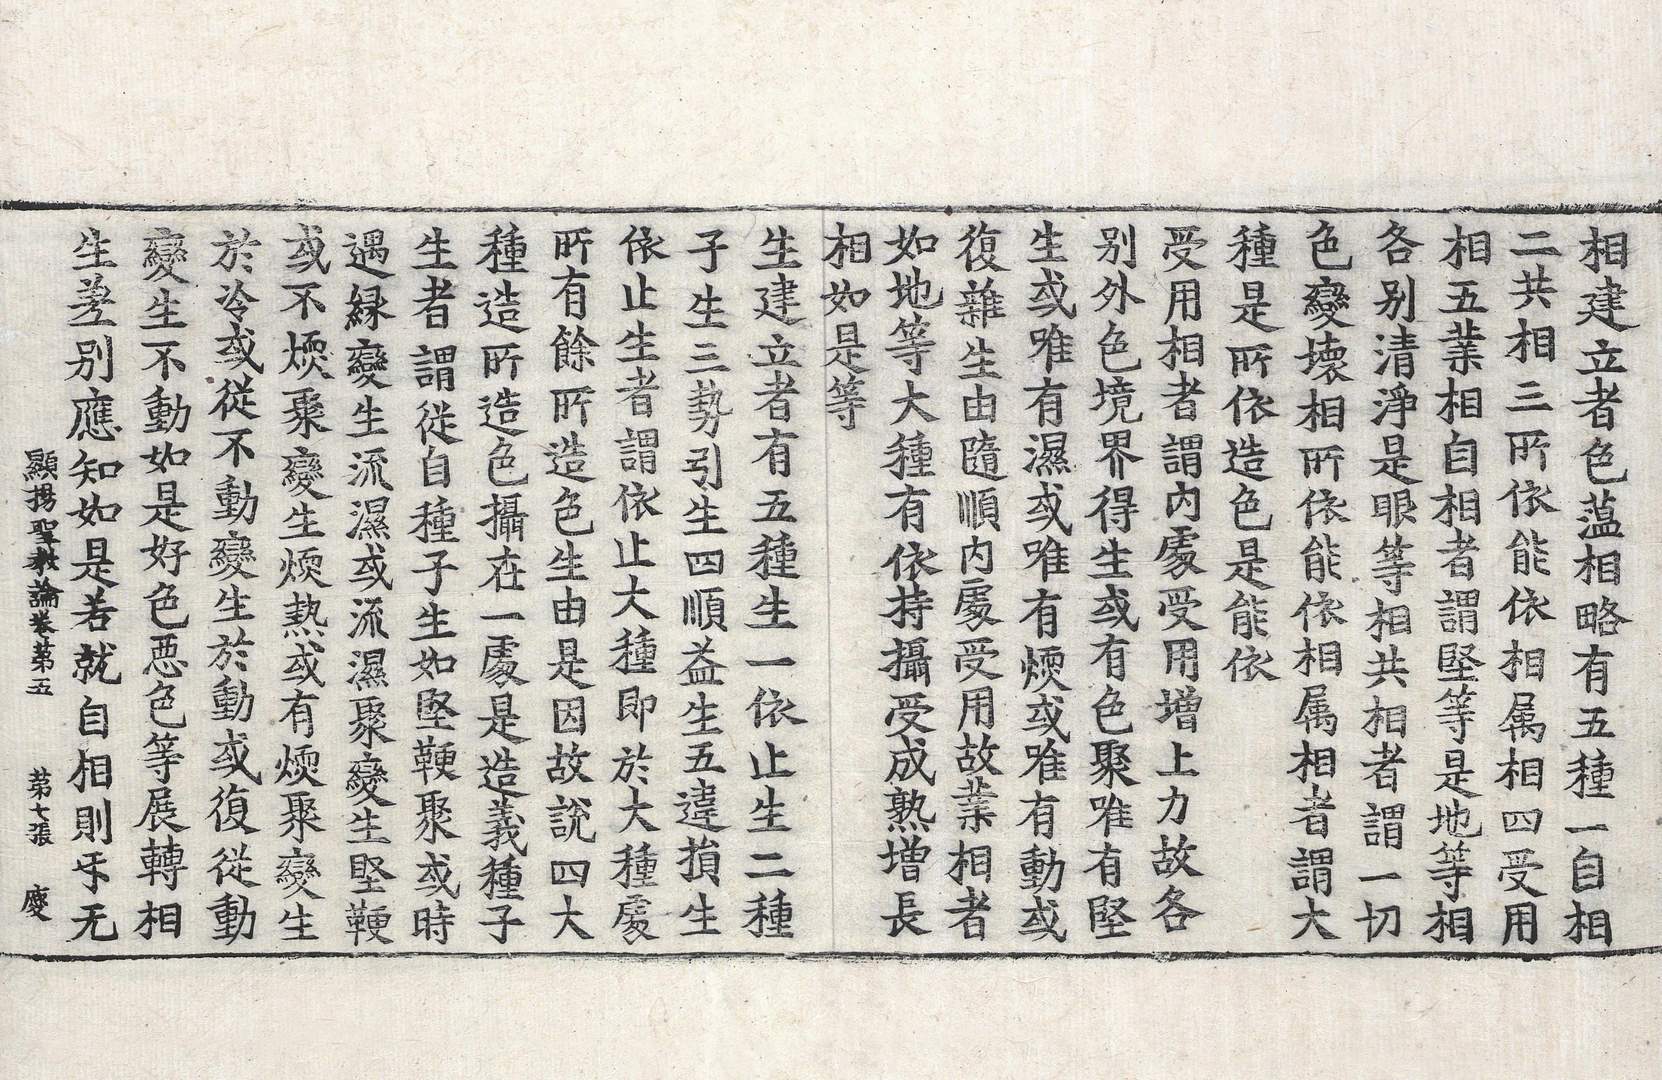 相建立者色藴相略有五種一自相
二共相三所依能依相属相四受用
相五業相自相者謂堅等是地等相
各别清淨是眼等相共相者謂一切
色變壞相所依能依相属相者謂大
種是所依造色是能依
受用相者謂内處受用增上力故各
别外色境界得生或有色聚唯有堅
生或唯有濕或唯有煗或唯有動或
復雜生由隨順内處受用故業相者
如地等大種有依持攝受成熟增長
相如是等
生建立者有五種生一依止生二種
子生三勢引生四順益生五違損生
依止生者謂依止大種即於大種處
所有餘所造色生由是因故說四大
種造所造色攝在一處是造義種子
生者謂從自種子生如堅鞕聚或時
遇緣變生流濕或流濕聚變生堅鞕
或不煗聚變生煗熱或有煗聚變生
於冷或從不動變生於動或復從動
變生不動如是好色惡色等展轉相
生差别應知如是若就自相則乐无
顯揚聖教論卷第五 第七張 慶